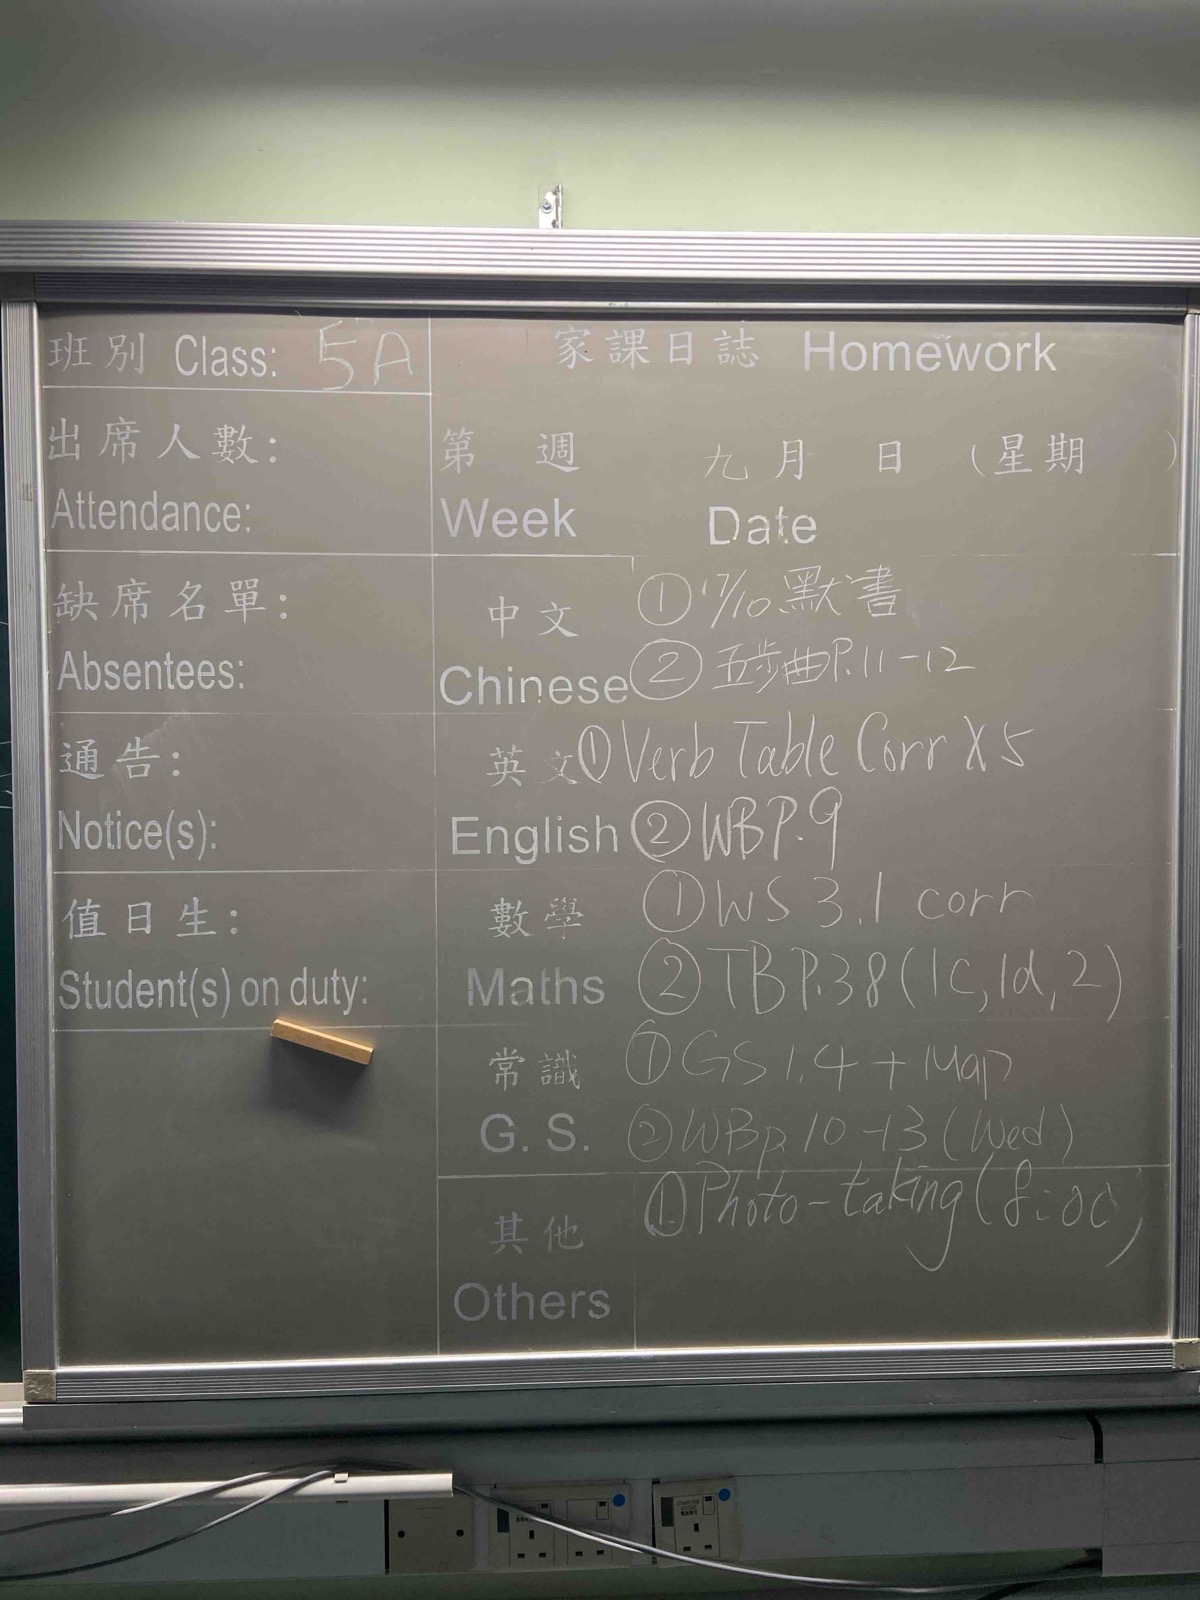 班別 Class: 5A
家課日誌 Homework
出席人數:
Attendance:
第 週 九月 日 (星期 )
Week Date
缺席名單:
Absentees:
中文
Chinese
① 17/10 默書
② 五步曲P.11-12
通告:
Notice(s):
英文
English
① Verb Table Corr X 5
② WB P.9
值日生:
Student(s) on duty:
數學
Maths
① WS 3.1 corr
② TB P.38 (1c, 1d, 2)
常識
G. S.
① GS 1.4 + Map
② WB p.10-13 (Wed)
其他
Others
① Photo-taking (8:00)